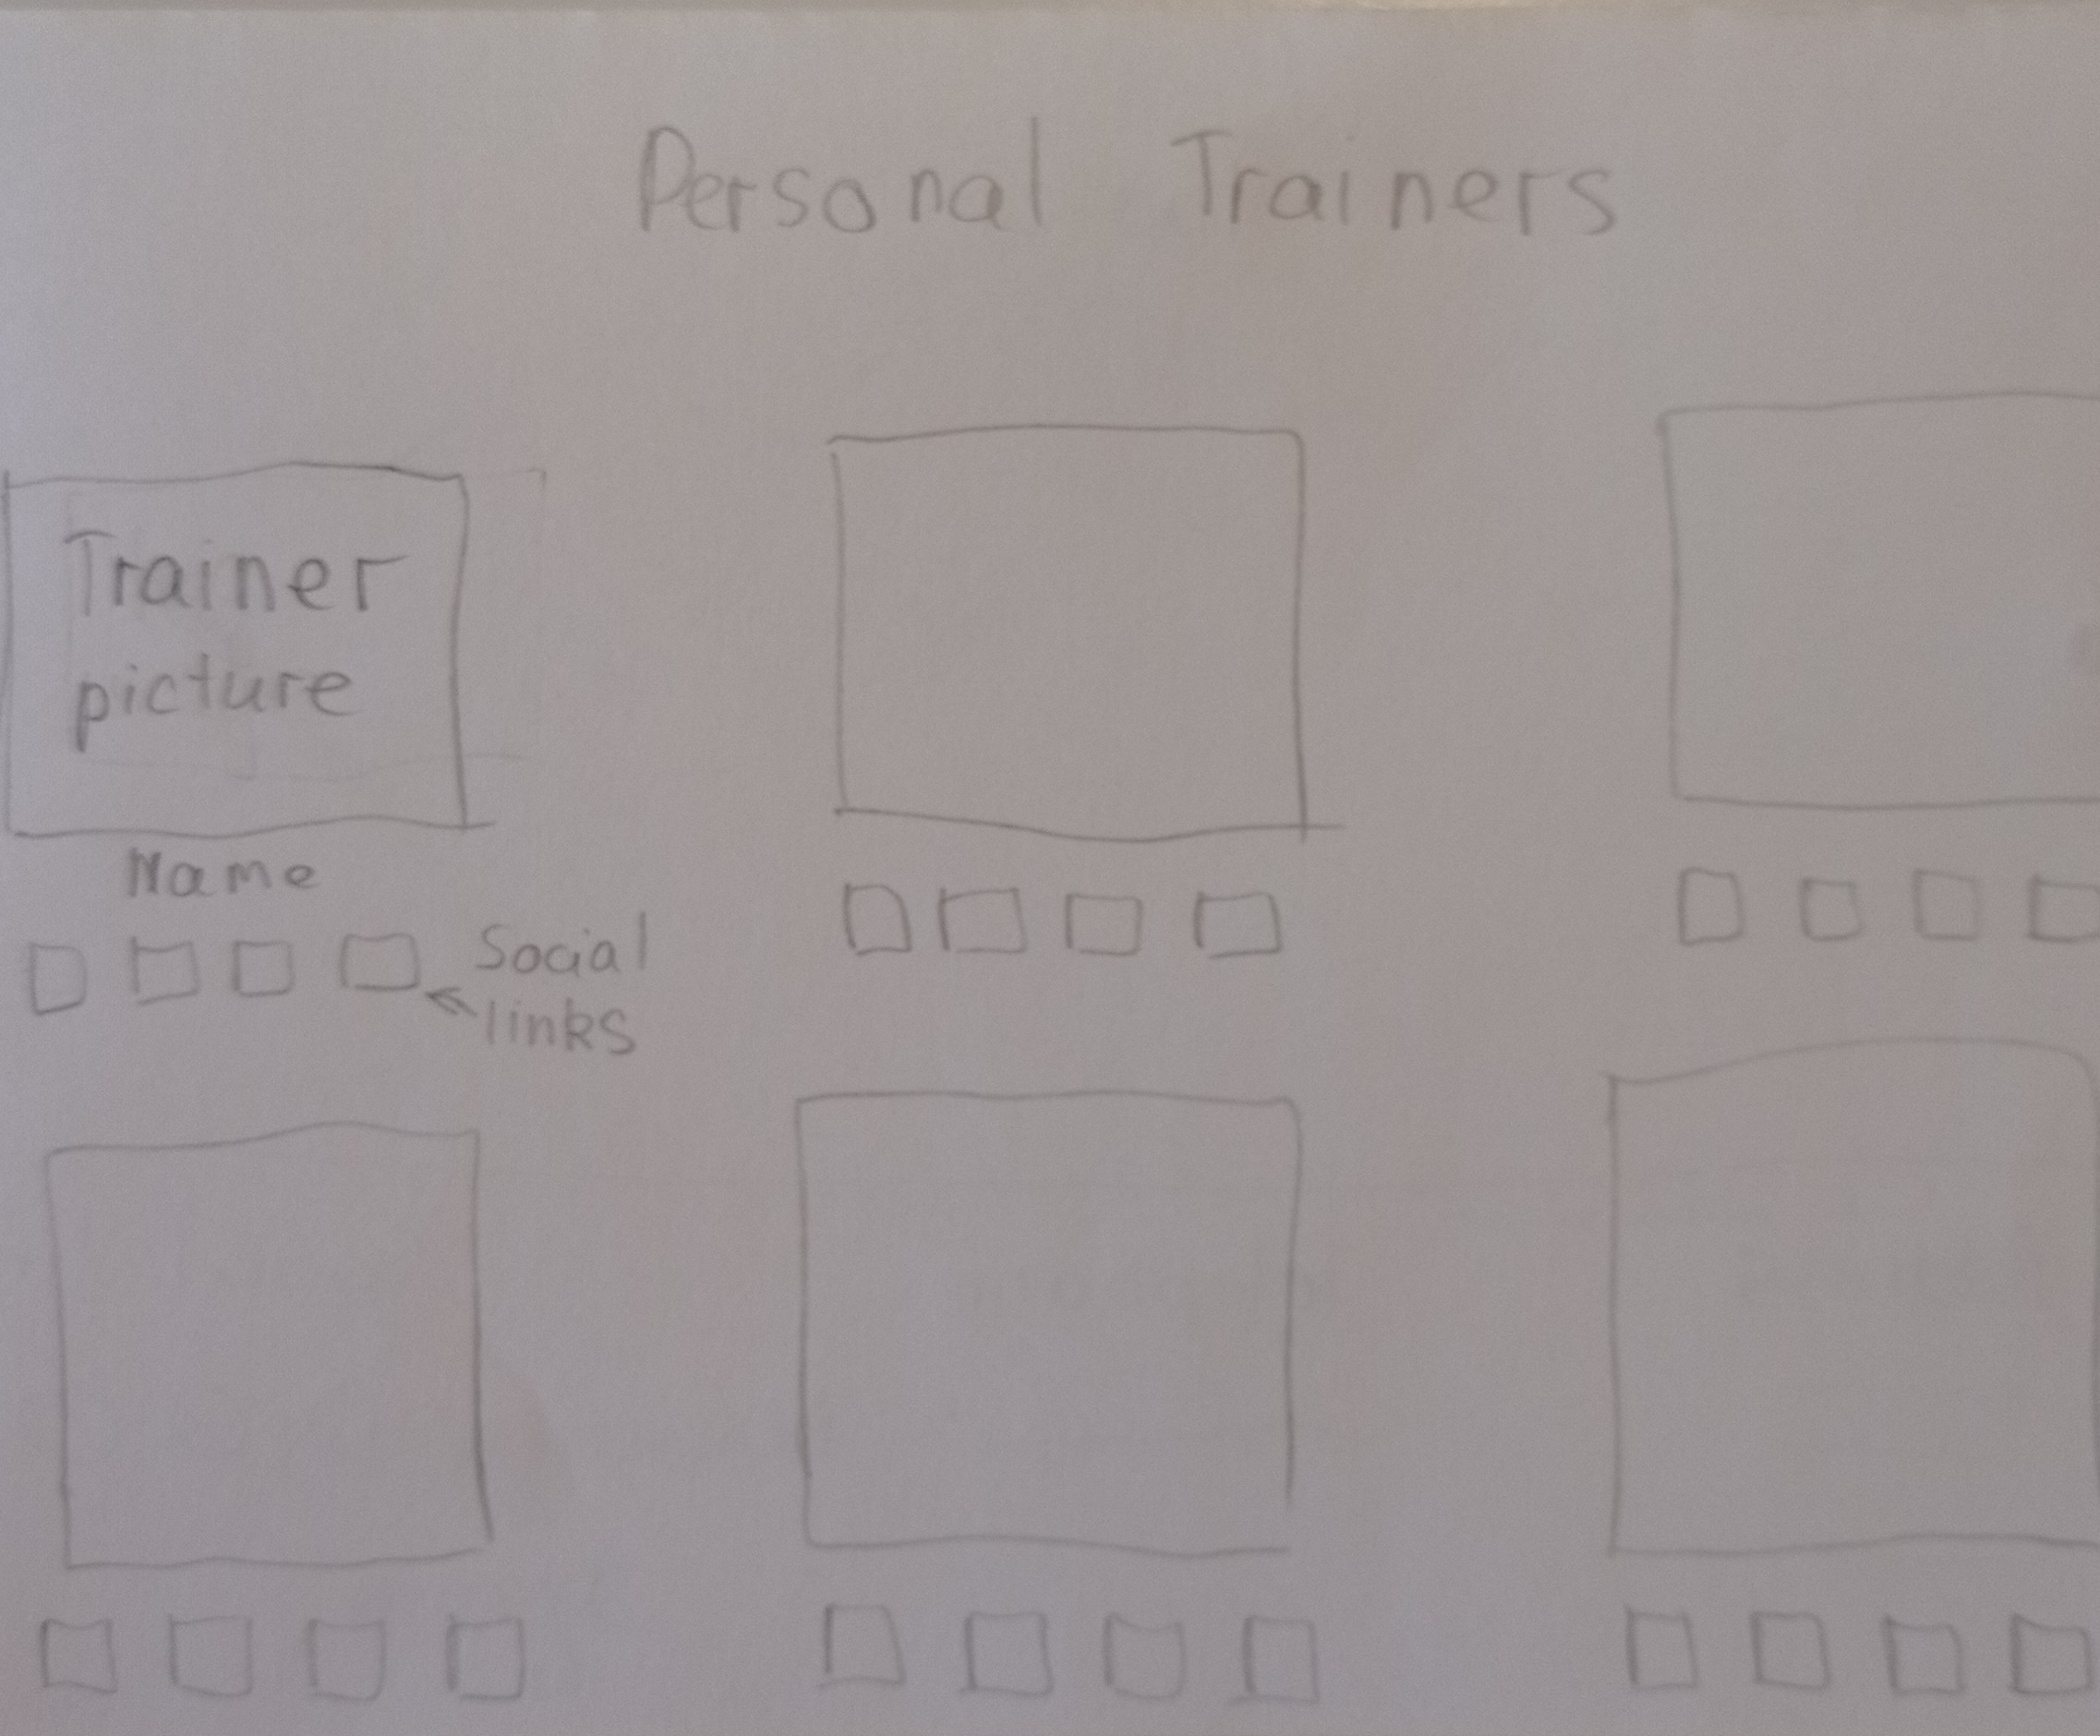 Personal Trainers
Trainer
picture
Name
Social
links